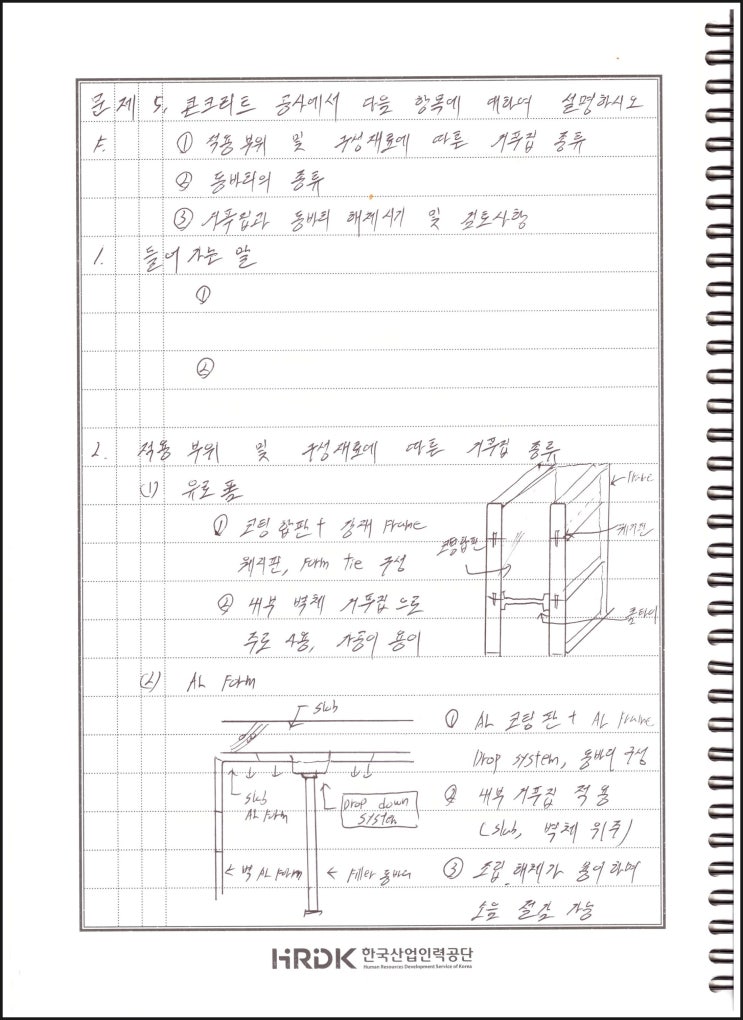 문제 5. 콘크리트 공사에서 다음 항목에 대하여 설명하시오
답. ① 적용 부위 및 구성재료에 따른 거푸집 종류
② 동바리의 종류
③ 거푸집과 동바리 해체시기 및 검토사항
1. 들어가는 말
①
②
2. 적용 부위 및 구성재료에 따른 거푸집 종류
(1) 유로 폼
① 코팅 합판 + 강재 Frame
웨지핀, Form tie 구성
② 내부 벽체 거푸집으로
주로 사용, 가공이 용이
Frame
웨지핀
코팅합판
폼타이
(2) AL Form
Slab
Slab
AL Form
Drop down
System
벽 AL Form
Filler 동바리
① AL 코팅판 + AL Frame
Drop system, 동바리 구성
② 내부 거푸집 적용
(Slab, 벽체 위주)
③ 조립, 해체가 용이하며
소음 절감 가능
HRDK 한국산업인력공단
Human Resources Development Service of Korea